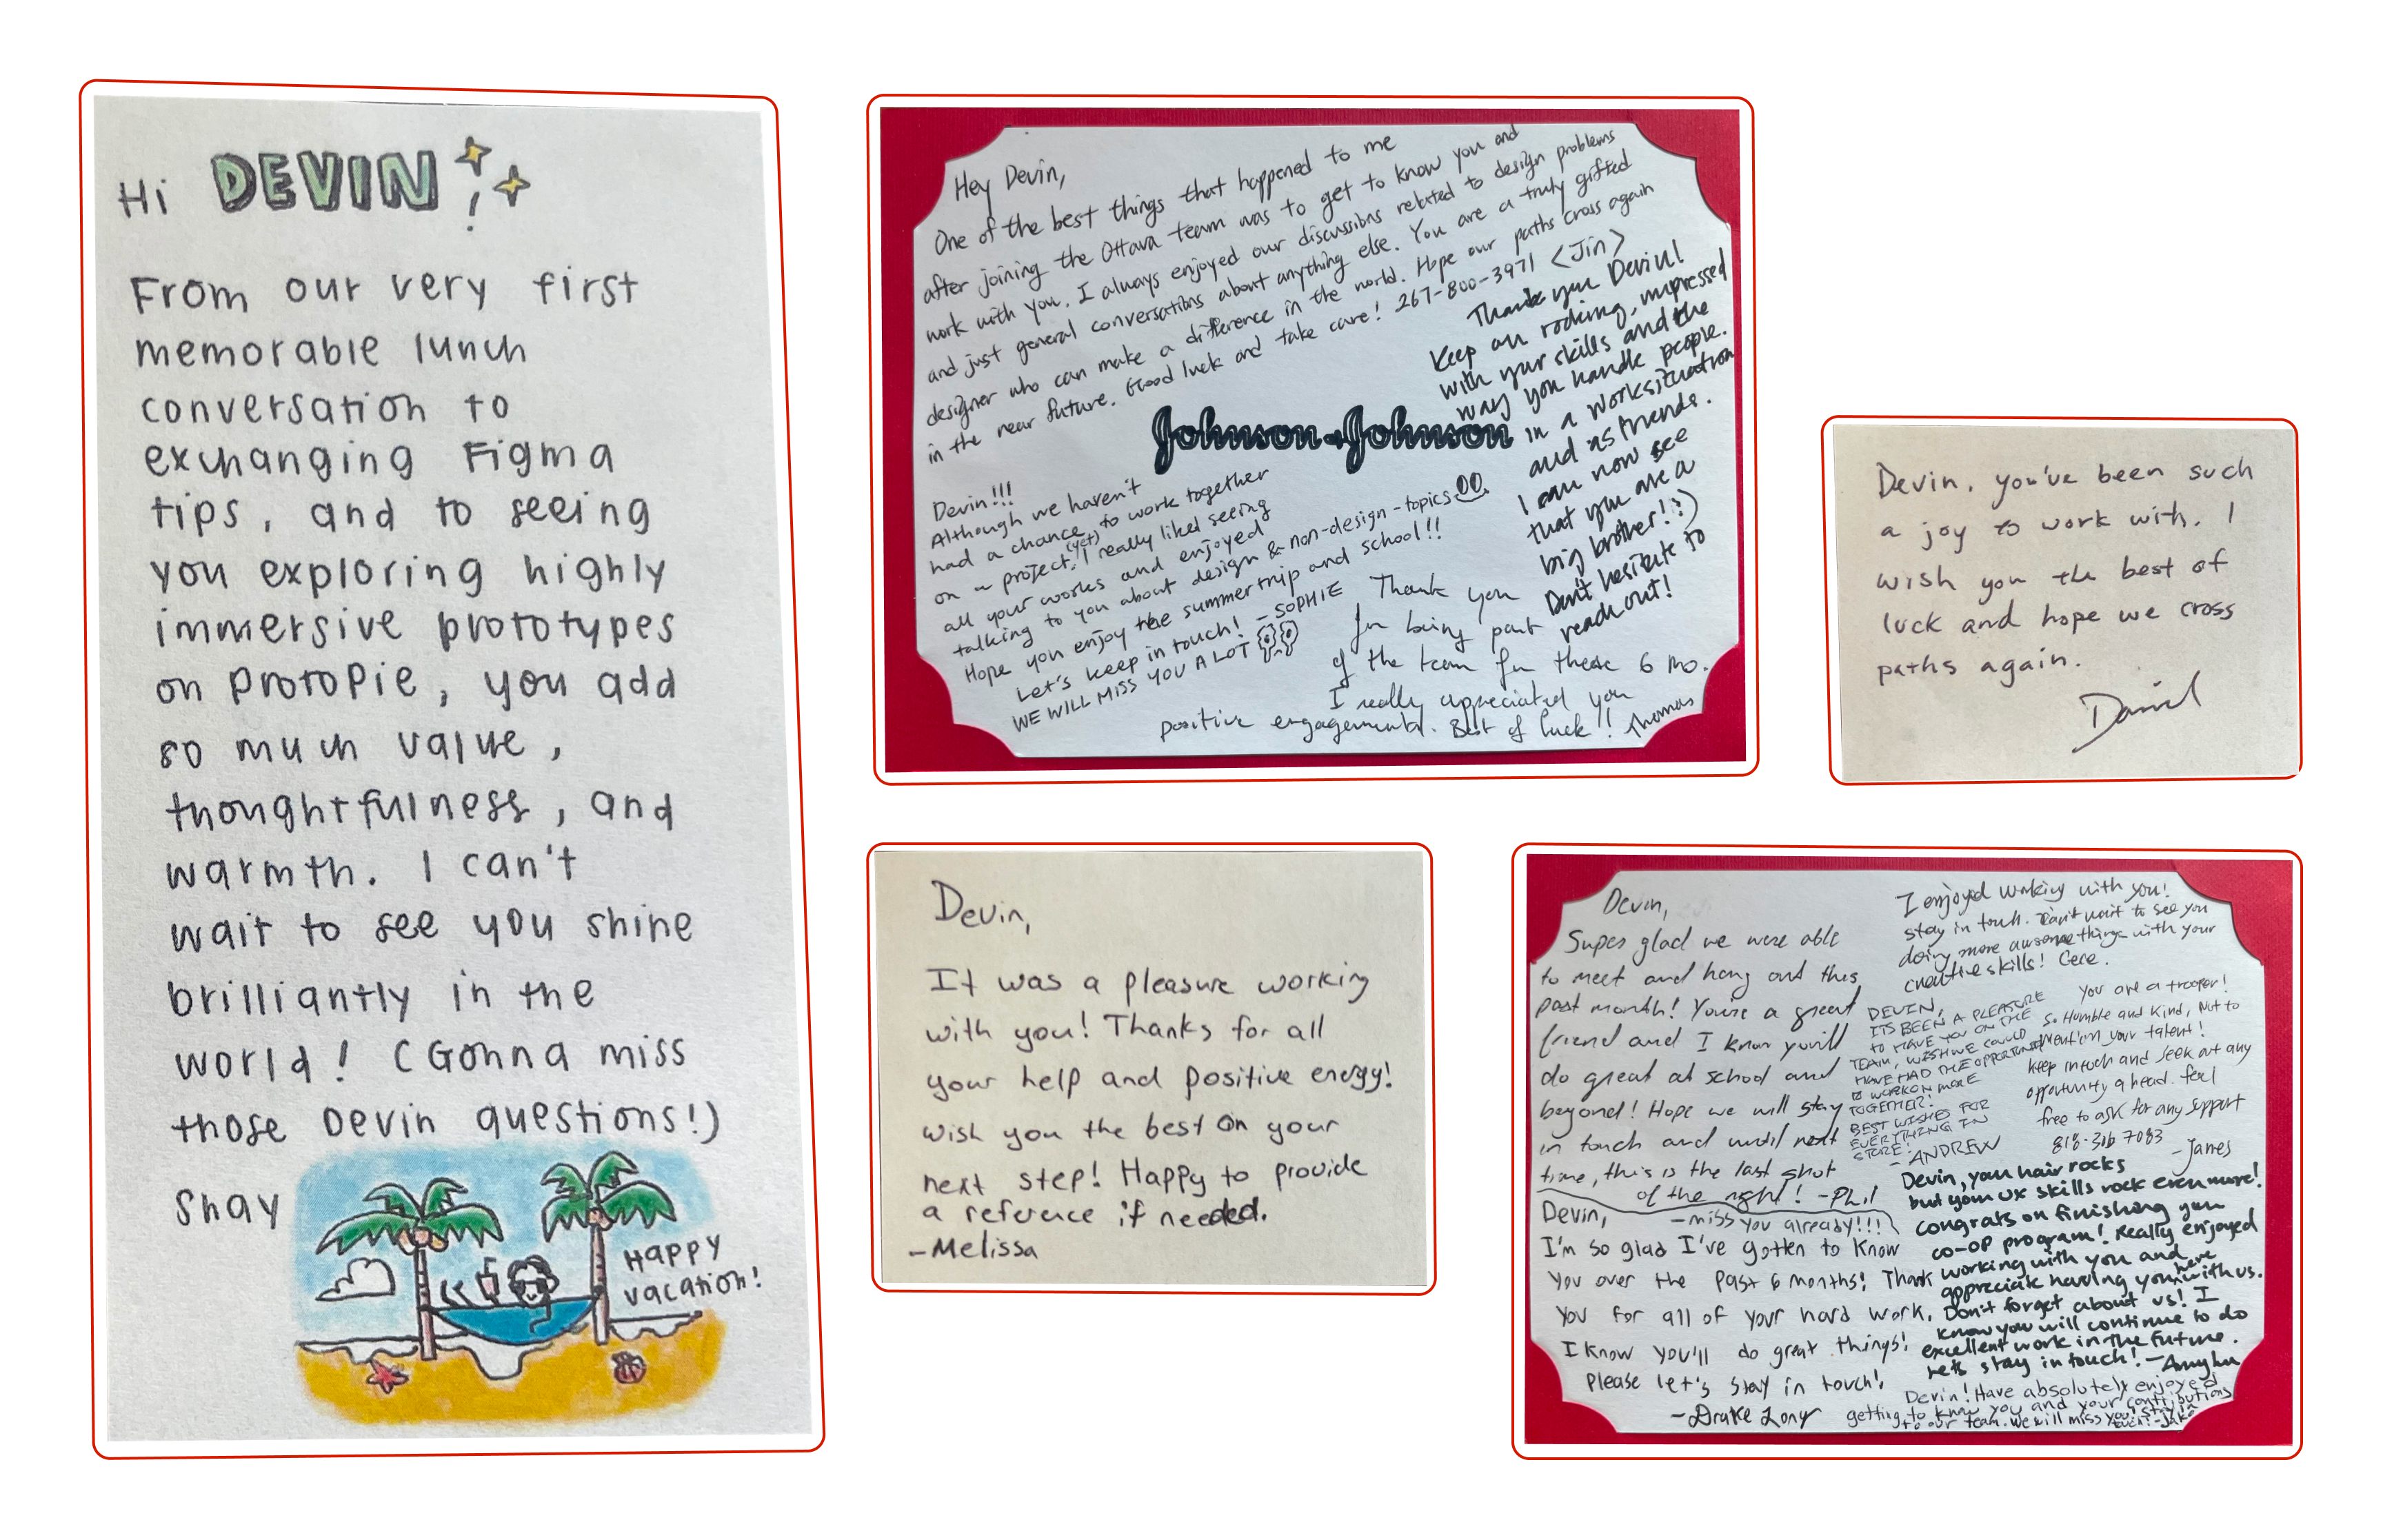 Hi DEVIN!
From our very first
memorable lunch
conversation to
exchanging Figma
tips, and to seeing
you exploring highly
immersive prototypes
on ProtoPie, you add
so much value,
thoughtfulness, and
warmth. I can't
wait to see you shine
brilliantly in the
world! (Gonna miss
those Devin questions!)
Shay
HAPPY
vacation!
Hey Devin,
One of the best things that happened to me
after joining the Ottava team was to get to know you and
work with you. I always enjoyed our discussions related to design problems
and just general conversations about anything else. You are a truly gifted
designer who can make a difference in the world. Hope our paths cross again
in the near future. Good luck and take care! 267-800-3971 <Jin>
Thank you Devin!
Keep on rocking, impressed
with your skills and the
way you handle people.
in a work situation
and as friends.
I can now see
that you are a
big brother! :)
Don't hesitate to
reach out!
Johnson & Johnson
Devin!!!
Although we haven't
had a chance to work together
on a project (yet), I really liked seeing
all your works and enjoyed
talking to you about design & non-design-topics
Hope you enjoy the summer trip and school!!
Let's keep in touch! - SOPHIE
WE WILL MISS YOU A LOT
Thank you
for being part
of the team for these 6 mo.
I really appreciated you
positive engagements. Best of luck!! Thomas
Devin, you've been such
a joy to work with. I
wish you the best of
luck and hope we cross
paths again.
Daniel
Devin,
It was a pleasure working
with you! Thanks for all
your help and positive energy!
Wish you the best on your
next step! Happy to provide
a reference if needed.
-Melissa
Devin,
Super glad we were able
to meet and hang out this
past month! You're a great
friend and I know you'll
do great at school and
beyond! Hope we will stay
in touch and until next
time, this is the last shot
of the night! -Phil
I enjoyed working with you!
stay in touch. Can't wait to see you
doing more awesome things with your
creative skills! Cece.
DEVIN,
ITS BEEN A PLEASURE
TO HAVE YOU ON THE
TEAM, WISH WE COULD
HAVE HAD THE OPPORTUNITY
TO WORK ON MORE
TOGETHER!
BEST WISHES FOR
EVERYTHING IN
STORE!
- ANDREW
You are a trooper!
So Humble and Kind, Not to
mention your talent!
keep in touch and seek out any
opportunity ahead. feel
free to ask for any support
818-316 7083
-James
Devin,
-miss you already!!!
I'm so glad I've gotten to know
you over the past 6 months! Thank
you for all of your hard work.
I know you'll do great things!
Please let's stay in touch!
-Drake Long
Devin, your hair rocks
but your UX skills rock even more!
congrats on finishing you
co-op program! Really enjoyed
working with you and
appreciate having you here with us.
Don't forget about us! I
know you will continue to do
excellent work in the future.
Let's stay in touch! -
Devin! Have absolutely enjoyed
getting to know you and your contributions
to our team. We will miss you! Stay in
touch! -Jake